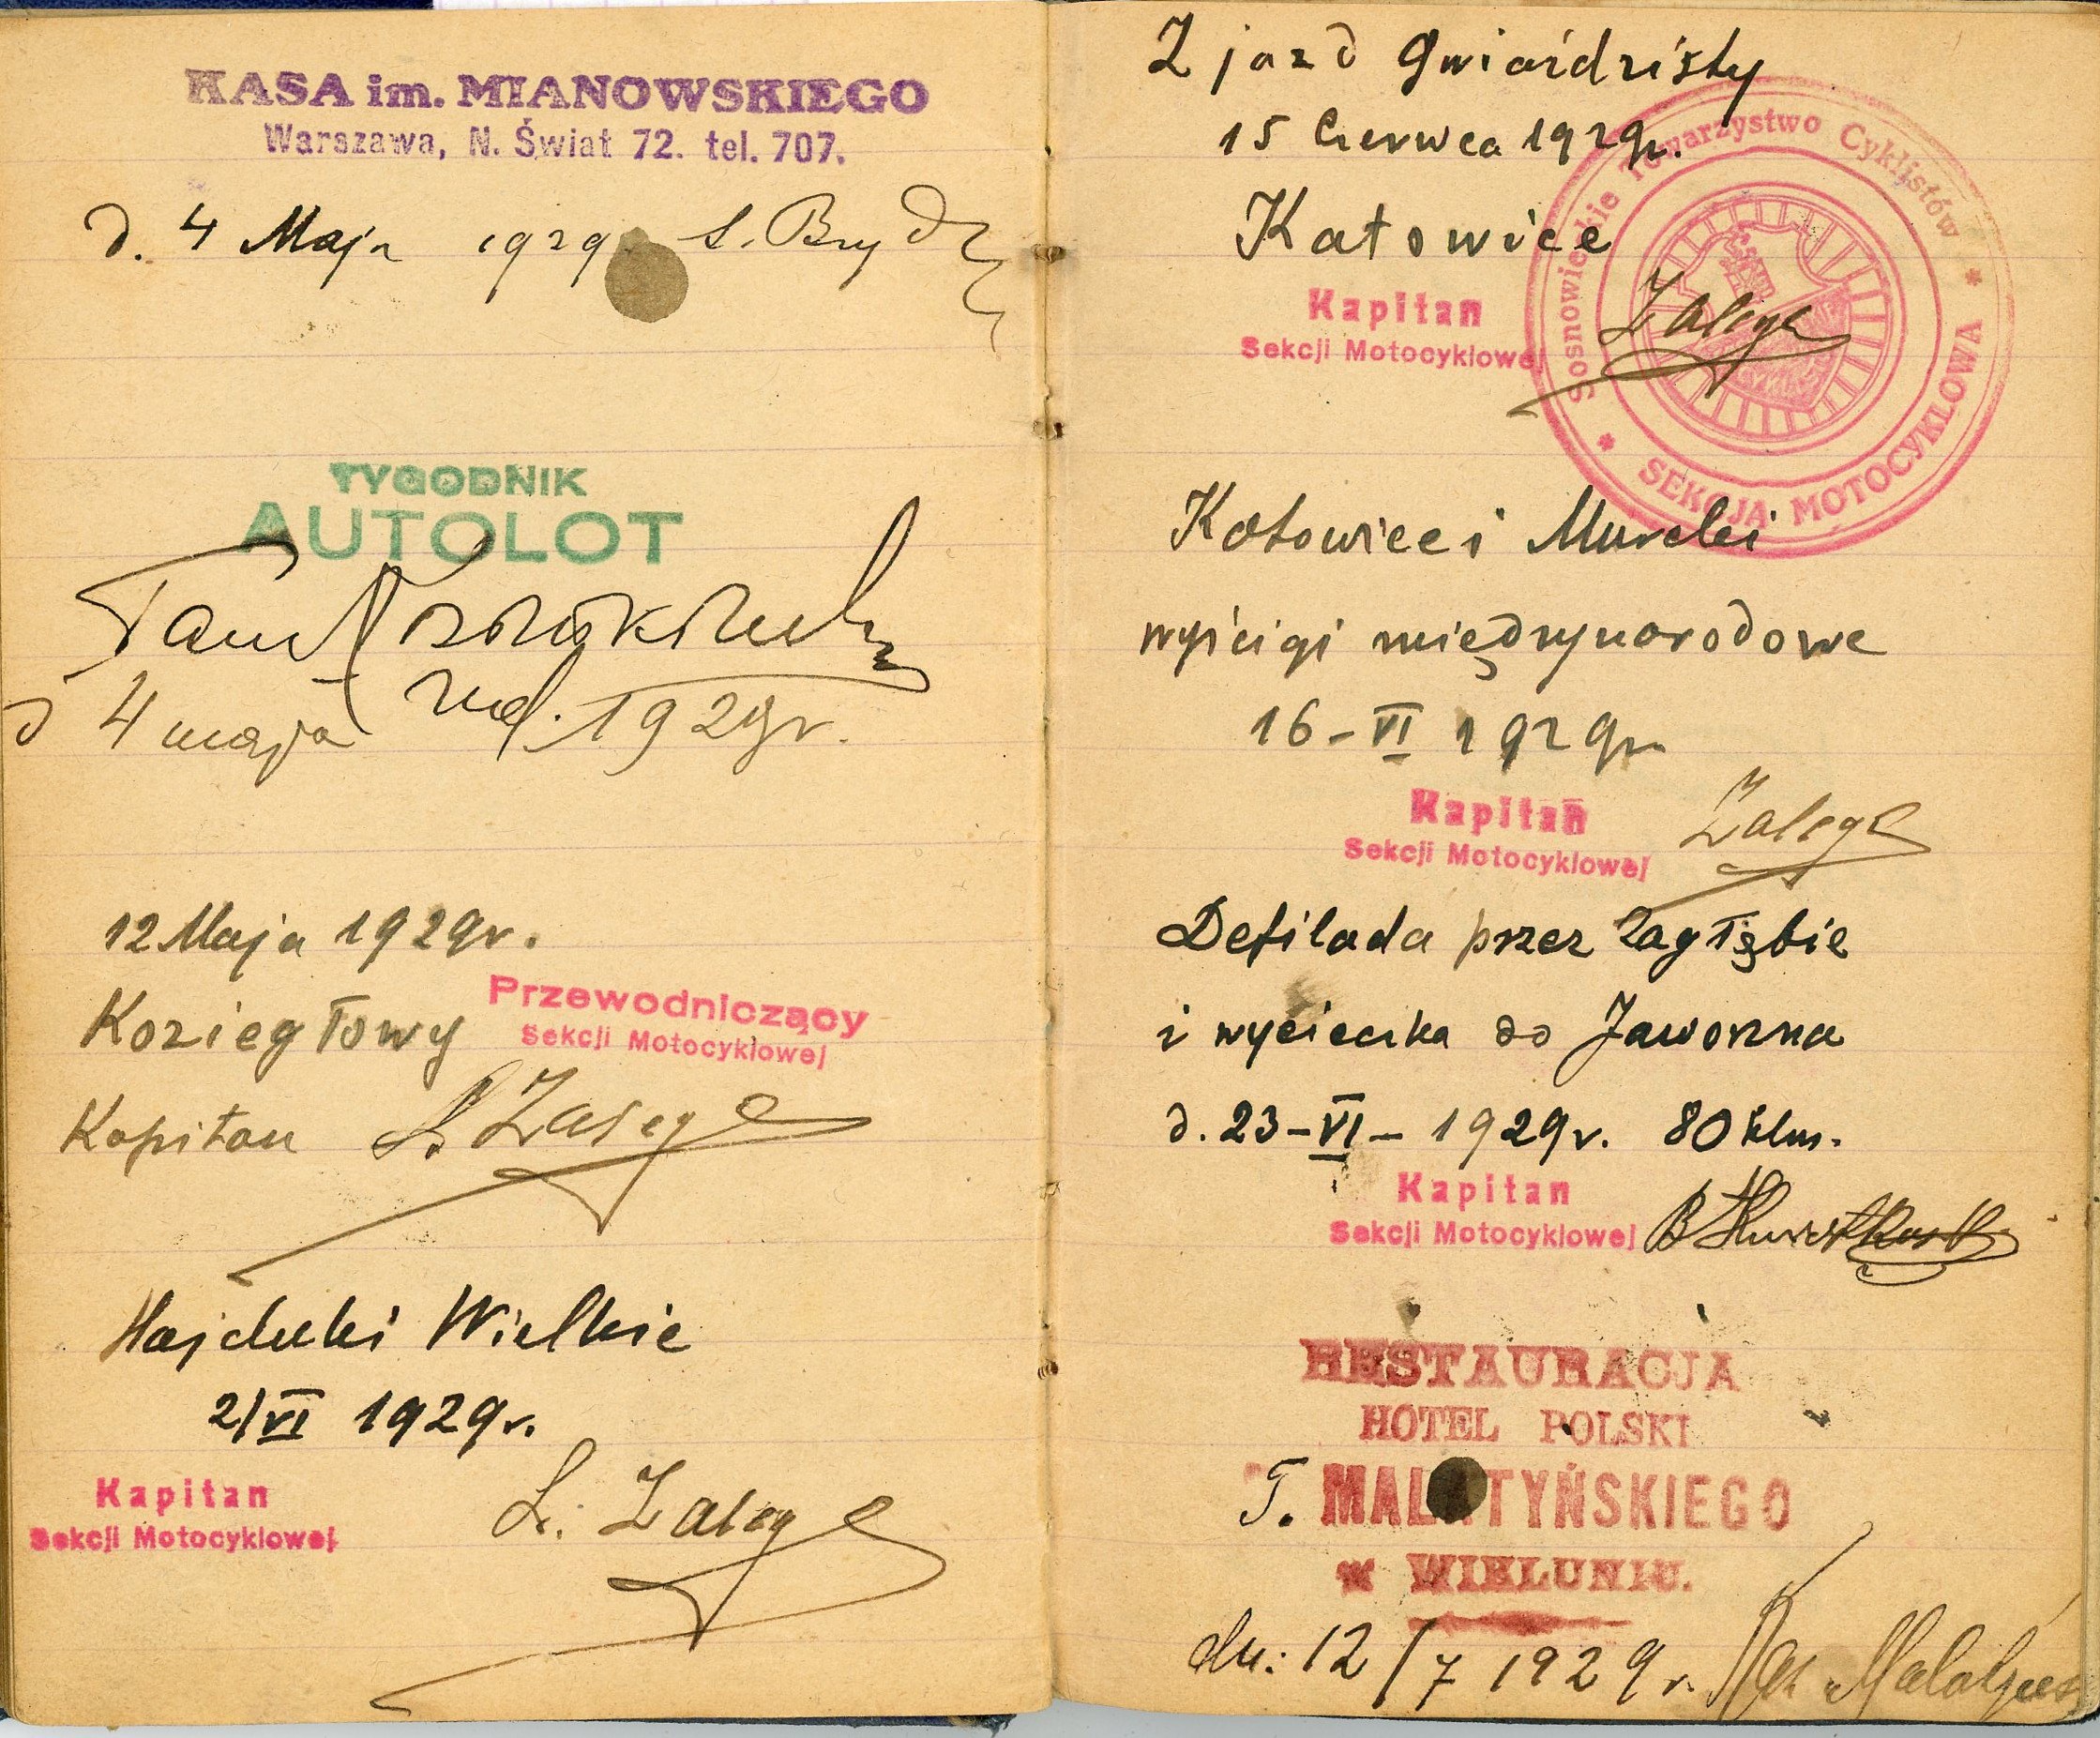 KASA im. MIANOWSKIEGO
Warszawa, N. Świat 72. tel. 707.
d. 4 Maja 1929
TYGODNIK
AUTOLOT
d 4 maja red. 1929r.
12 Maja 1929r.
Koziegłowy
Przewodniczący
Sekcji Motocyklowej
Kapitan L. Zalega
Hajduki Wielkie
2/VI 1929r.
Kapitan
Sekcji Motocyklowej
L. Zalega
Zjazd Gwiaździsty
15 Czerwca 1929r.
Katowice
Kapitan
Sekcji Motocyklowej
Zalega
Sosnowieckie Towarzystwo Cyklistów
* SEKCJA MOTOCYKLOWA *
Katowice i Murcki
wyścigi międzynarodowe
16-VI 1929r.
Kapitan
Sekcji Motocyklowej
Zalega
Defilada przez Zagłębie
i wycieczka do Jaworzna
d. 23-VI-1929r. 80 klm.
Kapitan
Sekcji Motocyklowej
RESTAURACJA
HOTEL POLSKI
T. MALATYŃSKIEGO
w WIELUNIU.
dn: 12/7 1929r.